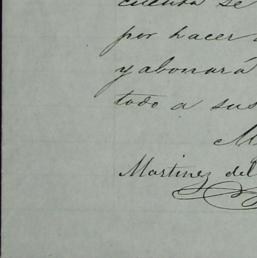 cuenta se
por hacer
y abonará
todo a sus
M
Martinez del